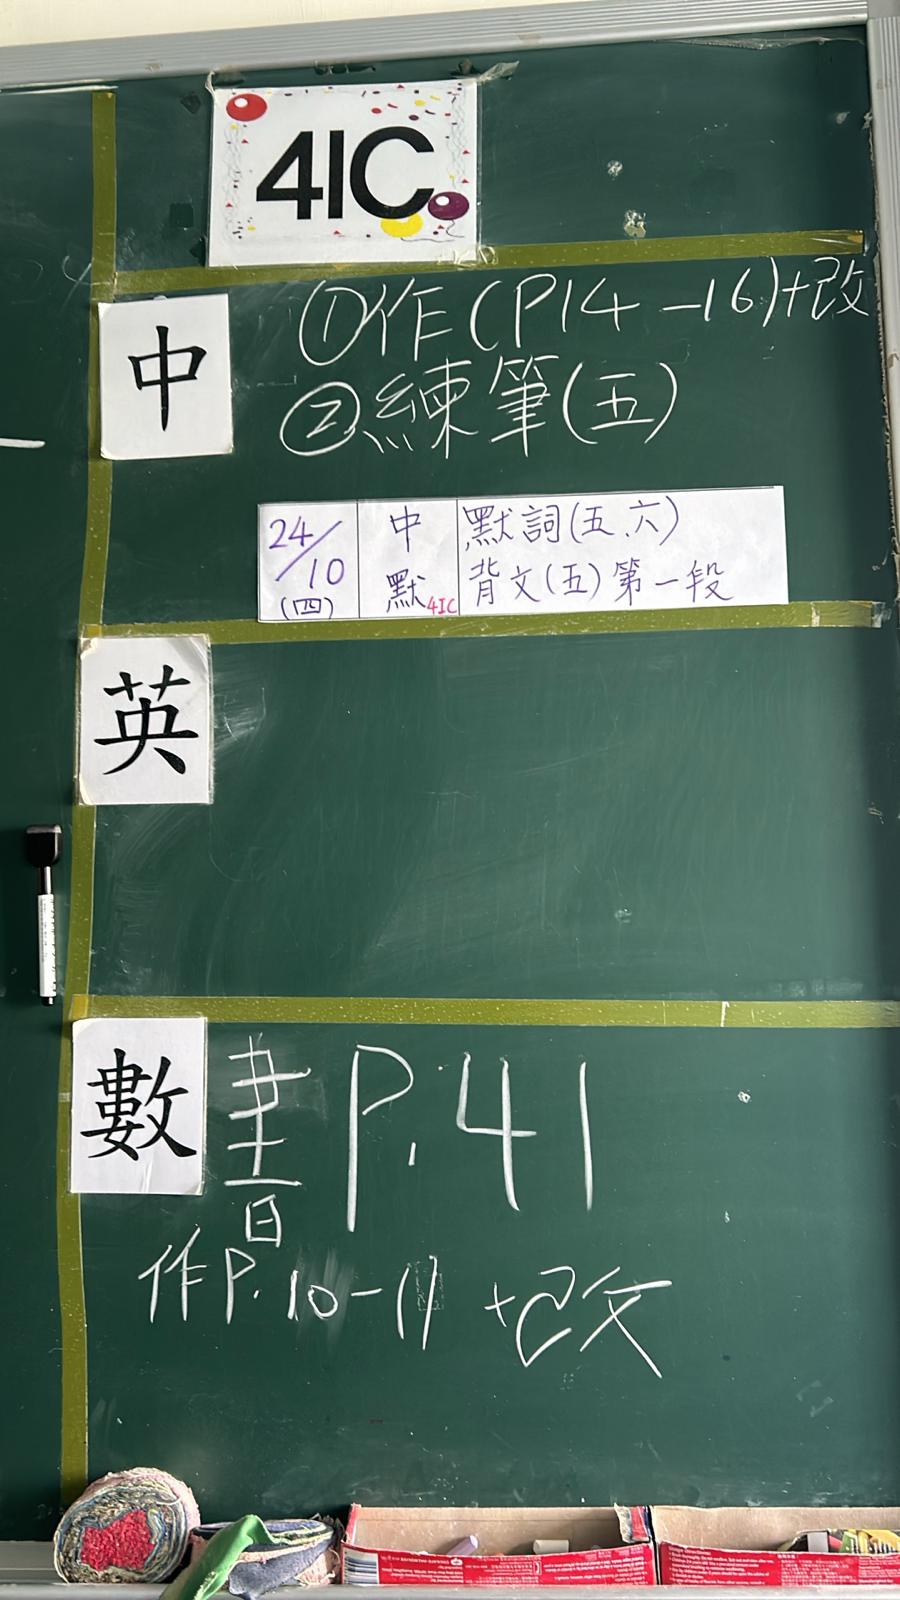 4IC
中
①作(P14-16)+改
②練筆(五)
24/10
(四)
中
默
4IC
默詞(五、六)
背文(五)第一段
英
數
書P.41
作P.10-11 +改